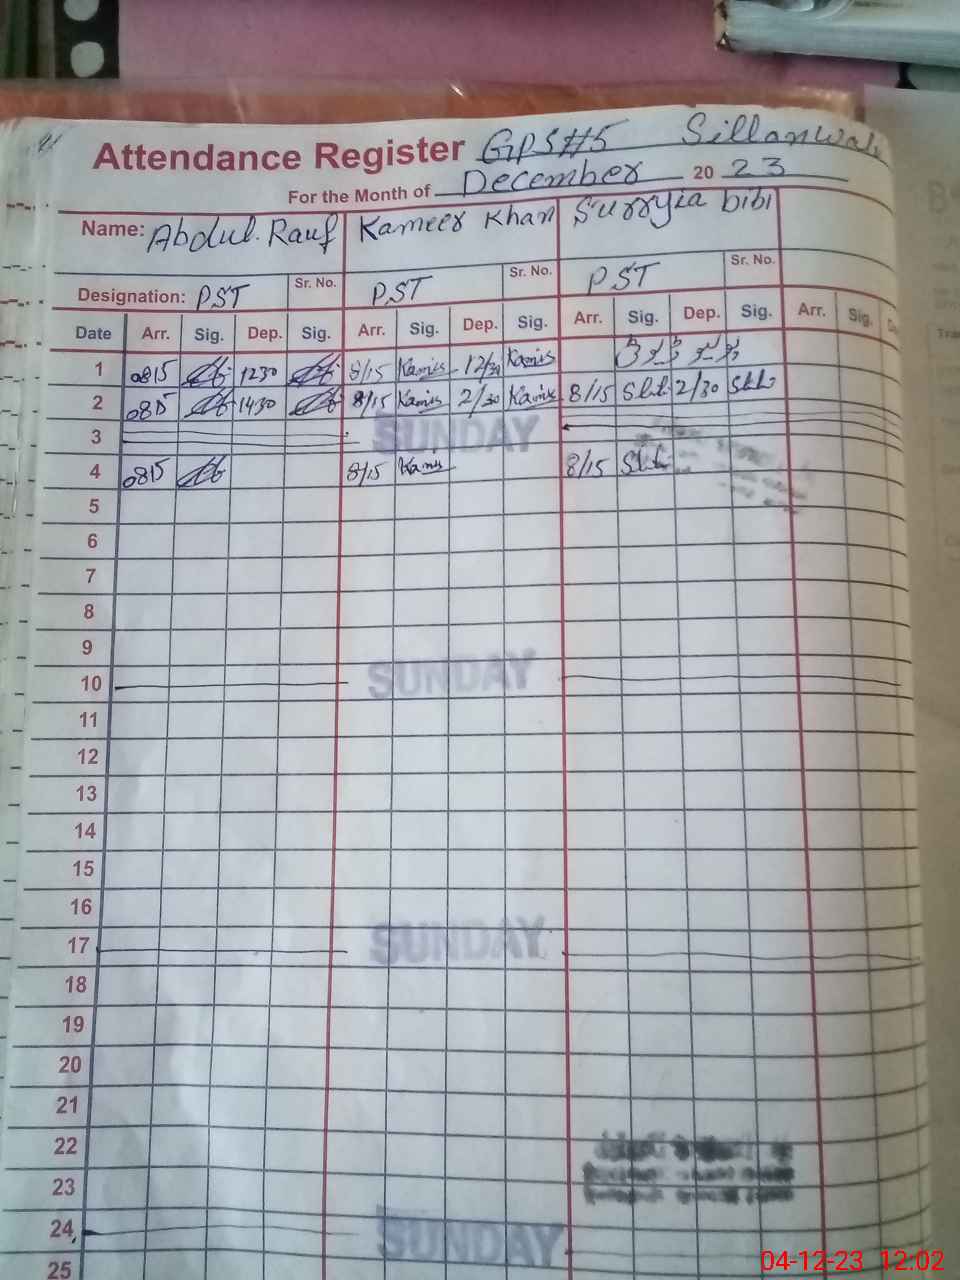 Attendance Register GPS#5 Sillanwali
For the Month of December 20 23
Name: Abdul. Rauf Kameer Khan Surryia bibi
Sr. No. Sr. No. Sr. No.
Designation: PST PST PST
Date Arr. Sig. Dep. Sig. Arr. Sig. Dep. Sig. Arr. Sig. Dep. Sig. Arr. Sig.
1 0815 1230 8/15 Kamis 12/30 Kamis
2 0815 1430 8/15 Kamis 2/30 Kamis 8/15 2/30
3 SUNDAY
4 0815 8/15 Kamis 8/15
5
6
7
8
9
10 SUNDAY
11
12
13
14
15
16
17 SUNDAY
18
19
20
21
22
23
24 SUNDAY
25
04-12-23 12:02